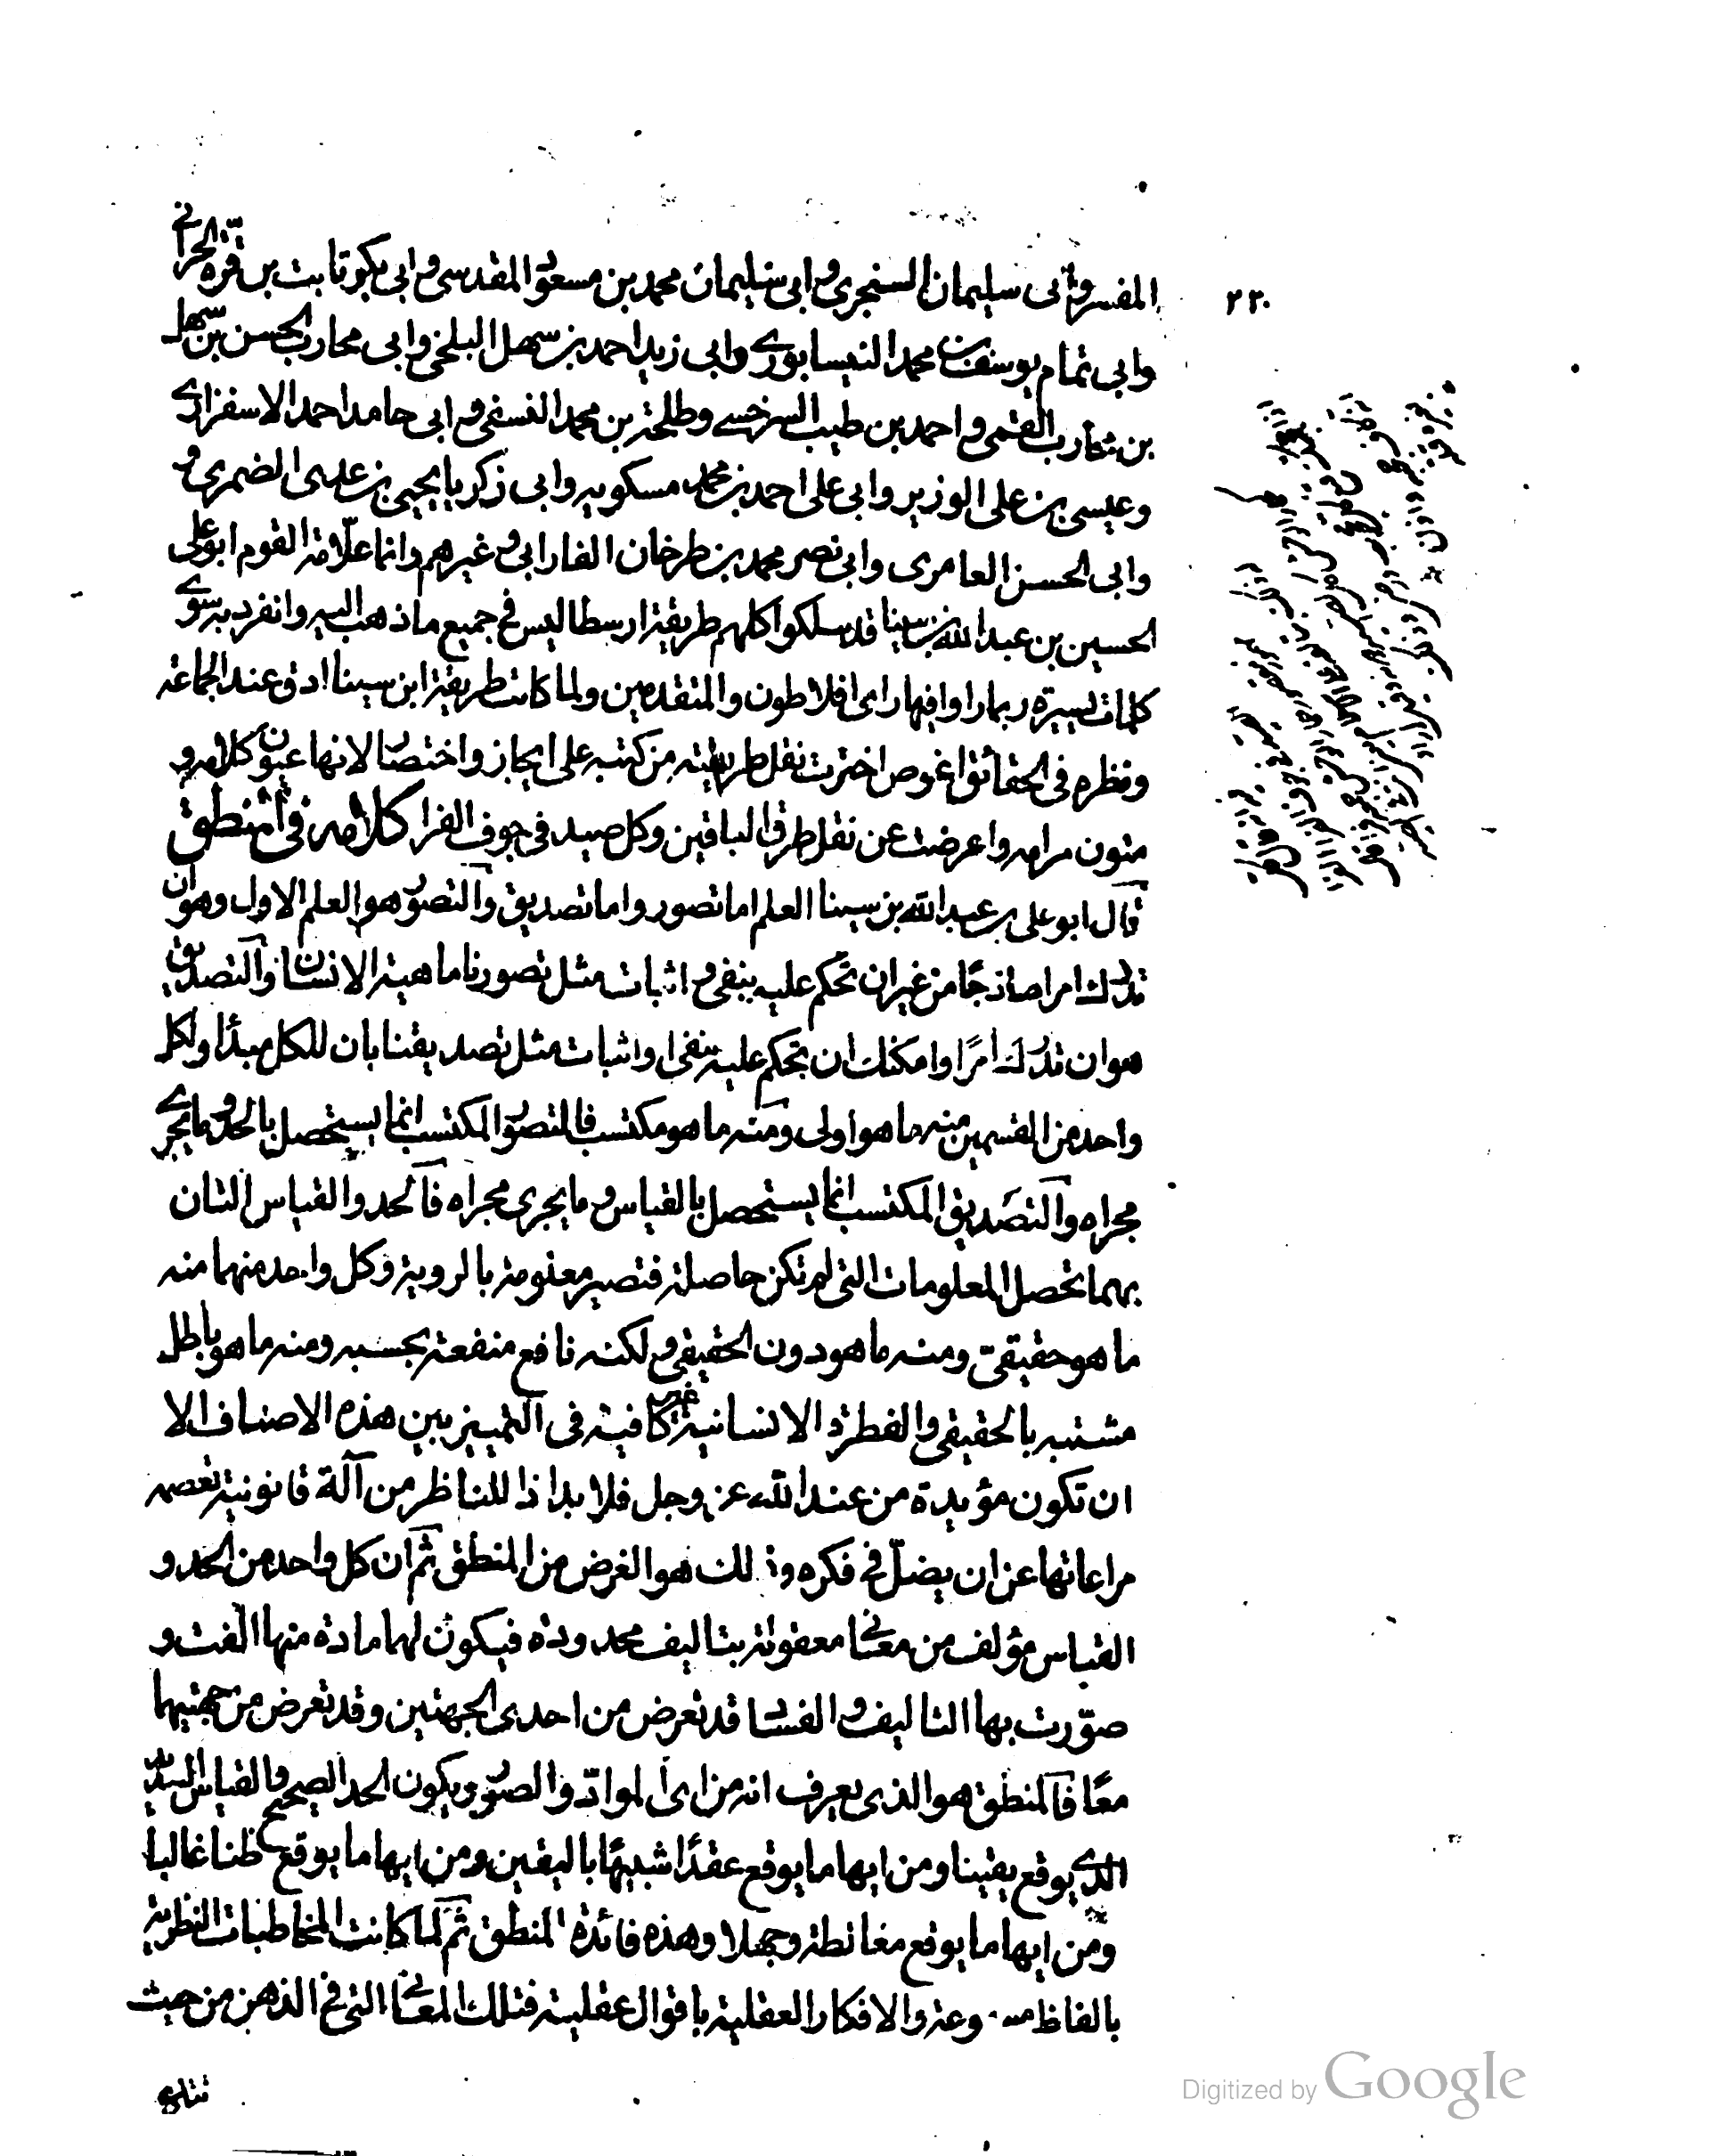 ٢٢٠
المفسر وابى سليمان السنجرى وابى سليمان محمد بن مسعود المقدسى وابى بكر ثابت بن قرة الحرانى
وابى تمام يوسف بن محمد النيسابورى وابى زيد احمد بن سهل البلخى وابى محارب الحسن بن سهل
بن محارب القمى و احمد بن طيب السرخسى وطلحة بن محمد النسفى و ابى حامد احمد الاسفزارى
وعيسى بن على الوزير وابى على احمد بن محمد مسكويه وابى زكريا يحيى بن عدى الضمرى و
وابى الحسن العامرى وابى نصر محمد بن طرخان الفارابى و غيرهم وانما علامة القوم ابو على
الحسين بن عبد الله بن سينا قد سلكوا كلهم طريقة ارسطاليس فى جميع ما ذهب اليه وانفرد به سوى
كلمات يسيرة ربما راوا فيها راى افلاطون والمتقدمين ولما كانت طريقة ابن سينا ادق عند الجماعة
ونظره فى الحقائق اغوص اخترت نقل طريقته من كتبه على ايجاز واختصار لانها عيون كلامه و
متون مرامه واعرضت عن نقل طرق الباقين وكل صيد فى جوف الفرا كلامه فى المنطق
قال ابو على بن عبد الله بن سينا العلم اما تصور واما تصديق والتصور هو العلم الاول وهو ان
تدرك امرا صاذجًا من غير ان تحكم عليه بنفى و اثبات مثل تصورنا ماهية الانسان والتصديق
هو ان تدرك امرًا وامكنك ان تحكم عليه بنفى او اثبات مثل تصديقنا بان للكل مبدأ وكل
واحد من القسمين منه ما هو اولى ومنه ما هو مكتسب فالتصور المكتسب انما يستحصل بالحد وما يجرى
مجراه والتصديق المكتسب انما يستحصل بالقياس و ما يجرى مجراه فالحد والقياس التان
بهما تحصل المعلومات التى لم تكن حاصلة فتصير معلومة بالروية وكل واحد منهما منه
ما هو حقيقى ومنه ما هو دون الحقيقى و لكنه نافع منفعة بحسبه ومنه ما هو باطل
مشتبه بالحقيقى والفطرة الانسانية غير كافية فى التمييز بين هذه الاصناف الا
ان تكون مؤيدة من عند الله عز وجل فلا بد اذا للناظر من آلة قانونية تعصمه
مراعاتها عن ان يضل فى فكره وذلك هو الغرض من المنطق ثم ان كل واحد من الحد و
القياس مؤلف من معانى معقولة بتاليف محدودة فيكون لهما مادة منها الفت و
صورت بها التاليف و الفساد قد تعرض من احدى الجهتين وقد تعرض من جهتيهما
معًا فالمنطق هو الذى يعرف انه من اى المواد والصور يكون الحد الصحيح والقياس السديد
الذى يوقع يقينا ومن ايها ما يوقع عقدًا شبيهًا باليقين ومن ايها ما يوقع ظنا غالبا
ومن ايها ما يوقع مغالطة وجهلا وهذه فائدة المنطق ثم لما كانت المخاطبات النظرية
بالفاظ مسموعة والافكار العقلية باقوال عقلية فتلك المعانى التى فى الذهن من حيث
Digitized by Google